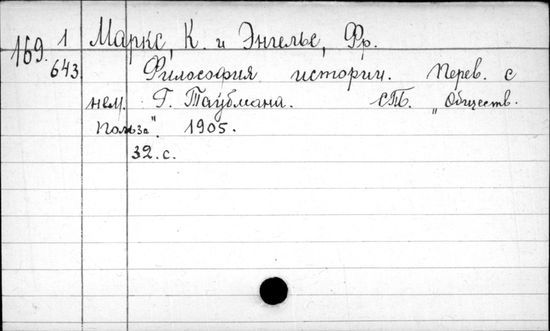 169. 1/643. Маркс, К. и Энгельс, Фр.
Философия истории. Перев. с
нем. Г. Таубмана. СПб. "Обществ.
Польза". 1905.
32. с.